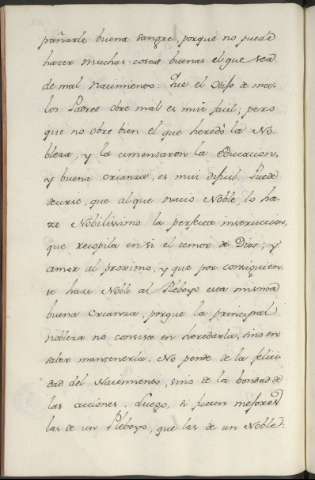 pañarle buena sangre, porque no puede
hazer muchas cosas buenas el que sea
de mal Nacimiento. Que el Hijo de ma-
los Padres obre mal es mui facil, pero
que no obre bien el que heredò la No-
bleza, y la cimentaron la educacion,
y buena crianza, es mui dificil. Puede
decirse, que al que nacio Noble, lo ha-
ze Nobilissimo la perfecta instruccion,
que recopila en si el temor de Dios, y
amor al proximo, y que por consiguiente
se haze Noble al Pleboyo esta misma
buena Crianza, porque la principal
nobleza no consista en heredarla, sino en
saber mantenerla. No pende de la felici-
dad del Nacimiento, sino de la bondad de
las acciones. Luego, si fueren mejores
las de un Pleboyo, que las de un Noble